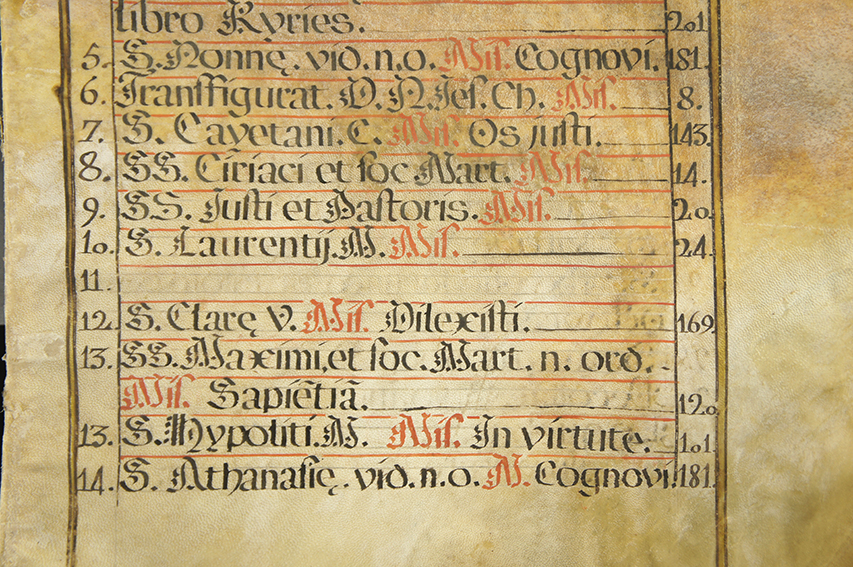 libro Kyries. 201
5. S. Nonnę. vid. n. o. Mis. Cognovi. 181.
6. Transfigurat. D. N. Jes. Ch. Mis. 8.
7. S. Cayetani. C. Mis. Os justi. 143.
8. SS. Ciriaci et soc Mart. Mis. 14.
9. SS. Justi et Pastoris. Mis. 20.
10. S. Laurentij. M. Mis. 24.
11.
12. S. Clarę V. Mis. Dilexisti. 169
13. SS. Maximi, et soc. Mart. n. ord.
Mis. Sapiẽtiã. 120
13. S. Hypoliti. M. Mis. In virtute. 101
14. S. Athanasię. vid. n. o. M. Cognovi. 181.